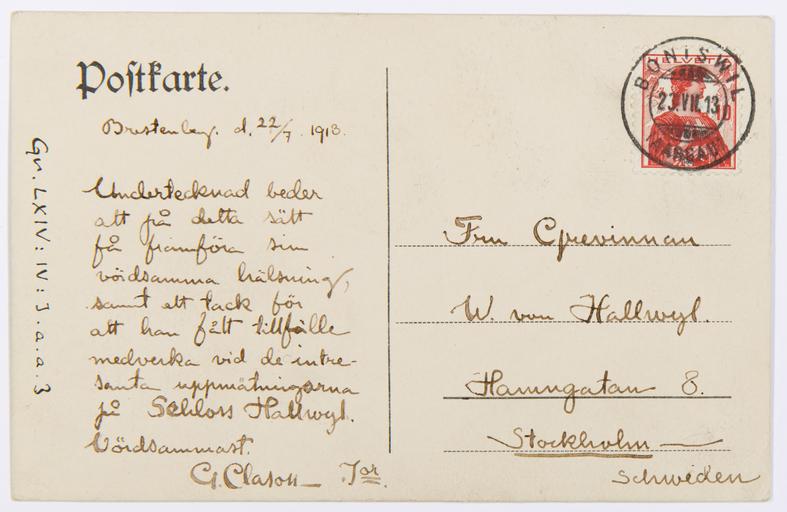 Postkarte.
Brestenberg. d. 22/7 1913.
Undertecknad beder
att på detta sätt
få framföra sin
vördsamma hälsning,
samt ett tack för
att han fått tillfälle
medverka vid de intre-
santa uppmätningarna
på Schloss Hallwyl.
Vördsammast.
G. Clason Jor.
Gr. LXIV: IV: J. a. a. 3
HELVETIA
BONISWIL
23.VII.13
(AARGAU)
Fru Grevinnan
W. von Hallwyl.
Hamngatan 8.
Stockholm
Schweden